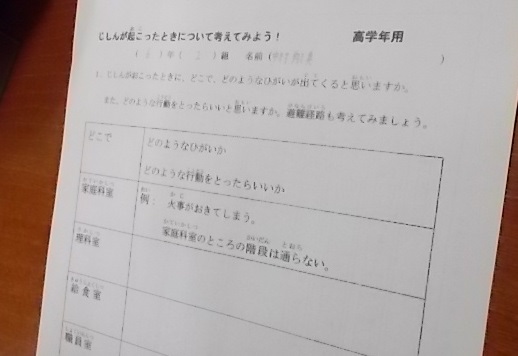 じしんが起こったときについて考えてみよう！　高学年用
（　）年（　）組　名前（　）
1．じしんが起こったときに、どこで、どのようなひがいが出てくると思いますか。
また、どのような行動をとったらいいと思いますか。避難経路も考えてみましょう。
どこで
どのようなひがいか
どのような行動をとったらいいか
家庭科室
例：　火事がおきてしまう。
家庭科室のところの階段は通らない。
理科室
給食室
職員室